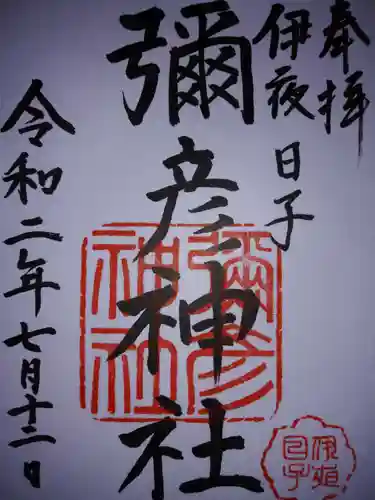 奉拝
伊夜日子
彌彦神社
令和二年七月十二日
彌彦
神社